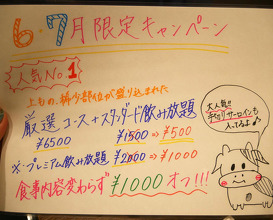 6・7月限定キャンペーン
人気No1
上もの、希少部位が盛り込まれた
厳選コース+スタンダード飲み放題
¥6500 ¥1500⇒¥500
※プレミアム飲み放題 ¥2000⇒¥1000
食事内容変わらず¥1000オフ!!!
大人気!!
サーロインも
入ってるよ♪